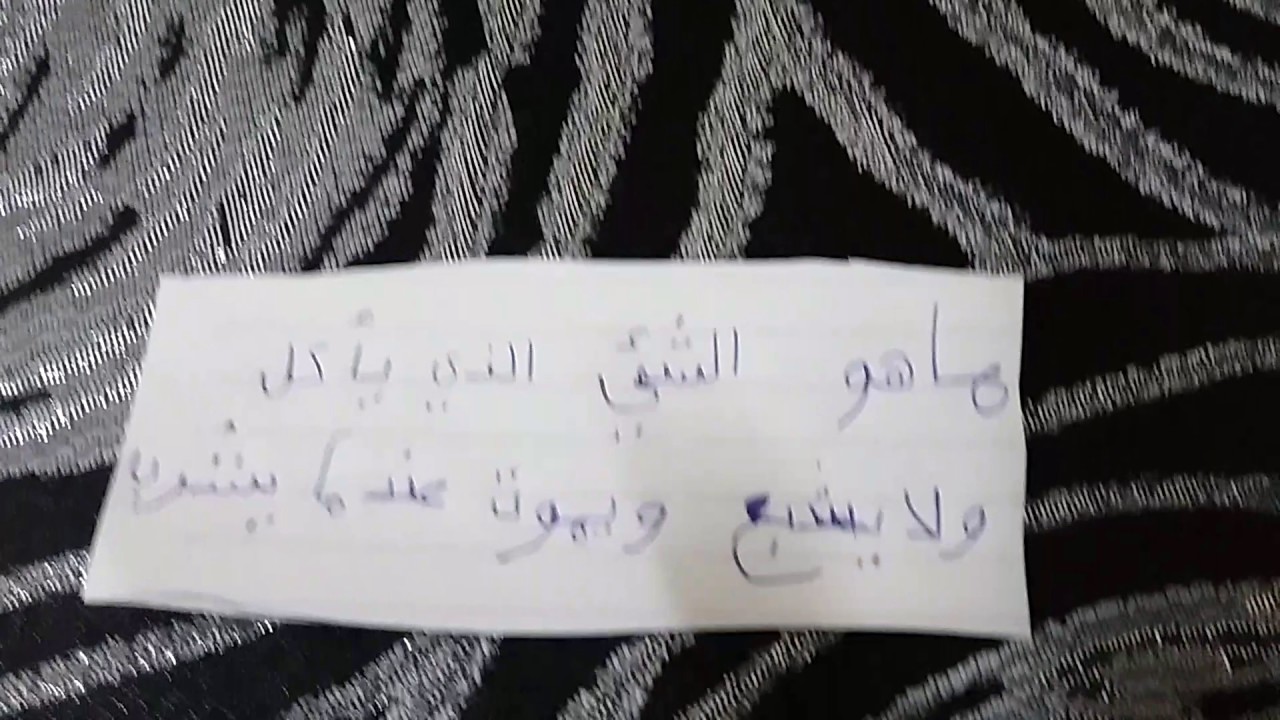 ما هو الشئي الذي يأكل
ولا يشبع ويموت عندما يشرب